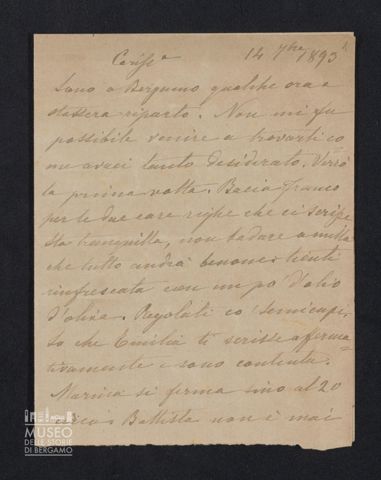 Cariss.a 14 7bre 1893
Sono a Bergamo qualche ora e
stassera riparto. Non mi fu
possibile venire a trovarti co
me avrei tanto desiderato. Verrò
la prima volta. Bacia Franco
per le due care righe che ci scrisse
Sta tranquilla, non badare a nulla
che tutto andrà benone tienti
rinfrescata con un po' d'olio
d'oliva. Regolati co' semicupi,
so che Emilia ti scrisse afferma-
tivamente e sono contenta.
Marina si ferma sino al 20
Battista non è mai
MUSEO
DELLE STORIE
DI BERGAMO